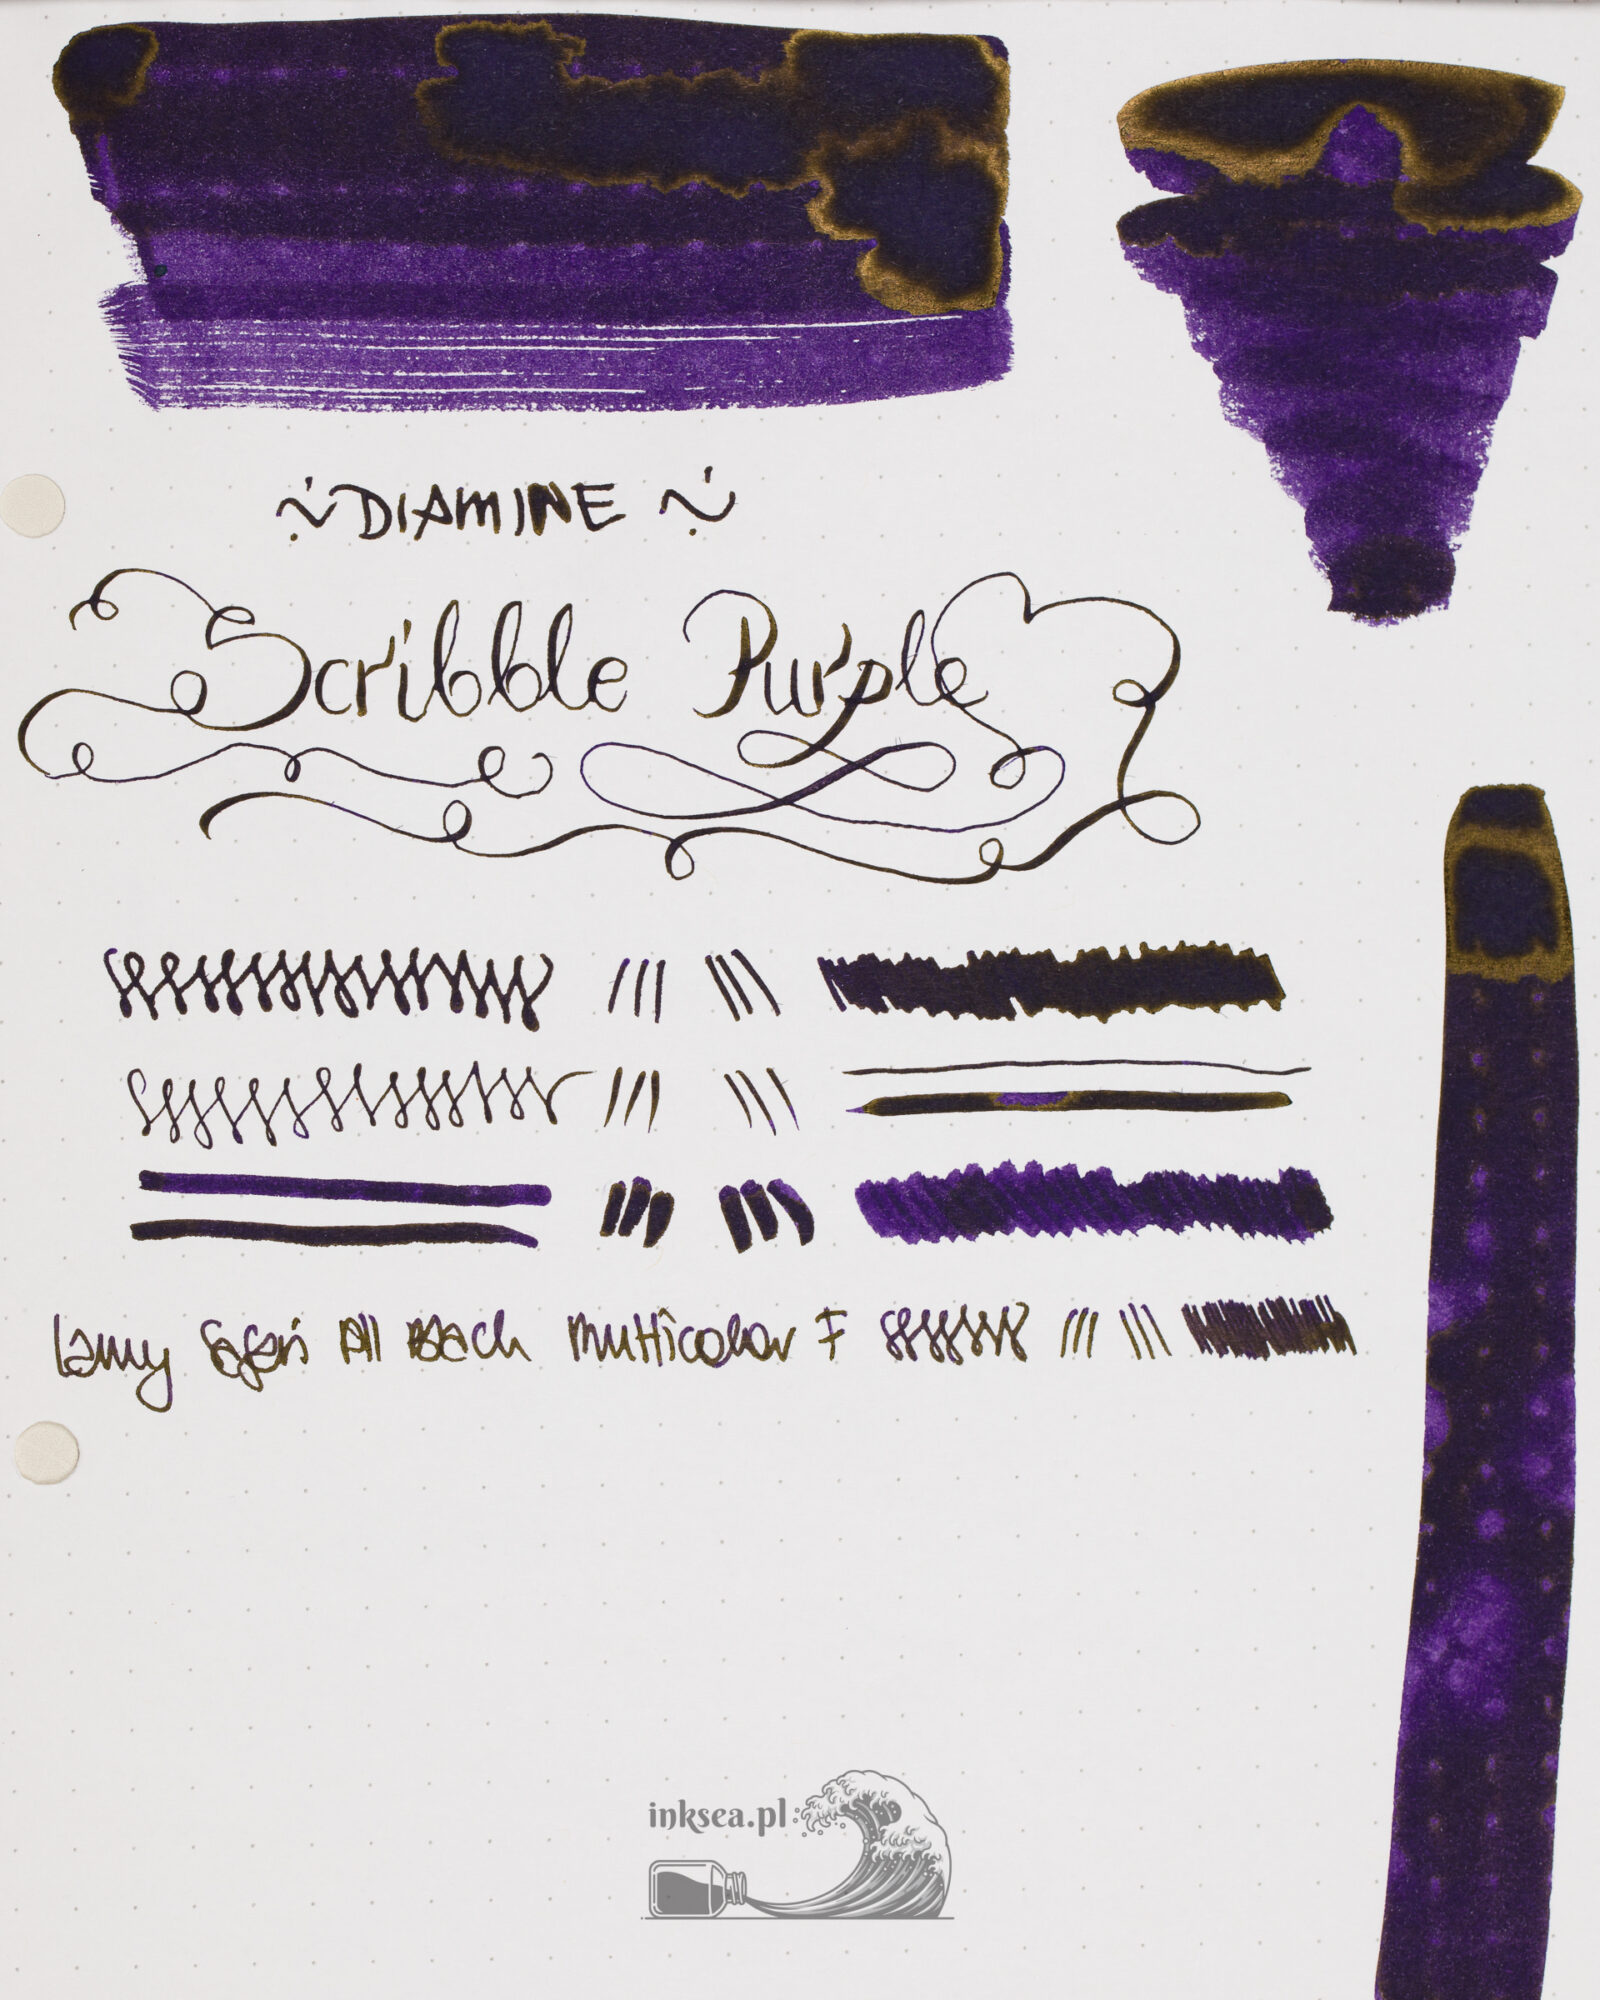 ~ DIAMINE ~
Scribble Purple
Lamy Safari All Black Multicolor F
inksea.pl